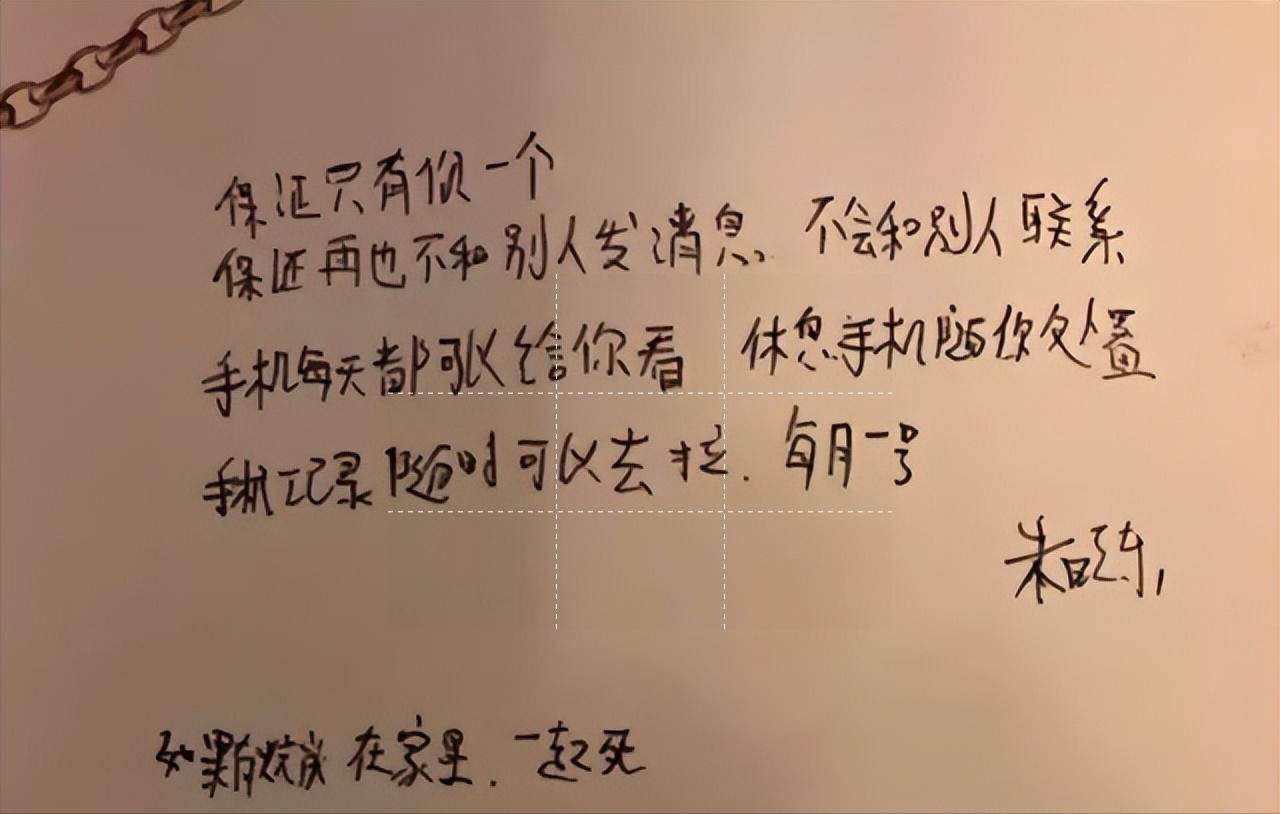 保证只有你一个
保证再也不和别人发消息、不会和别人联系
手机每天都可以给你看 休息手机随你处置
手机记录随时可以去拉．每月一号
朱晓东，
如果有 在家里．一起死